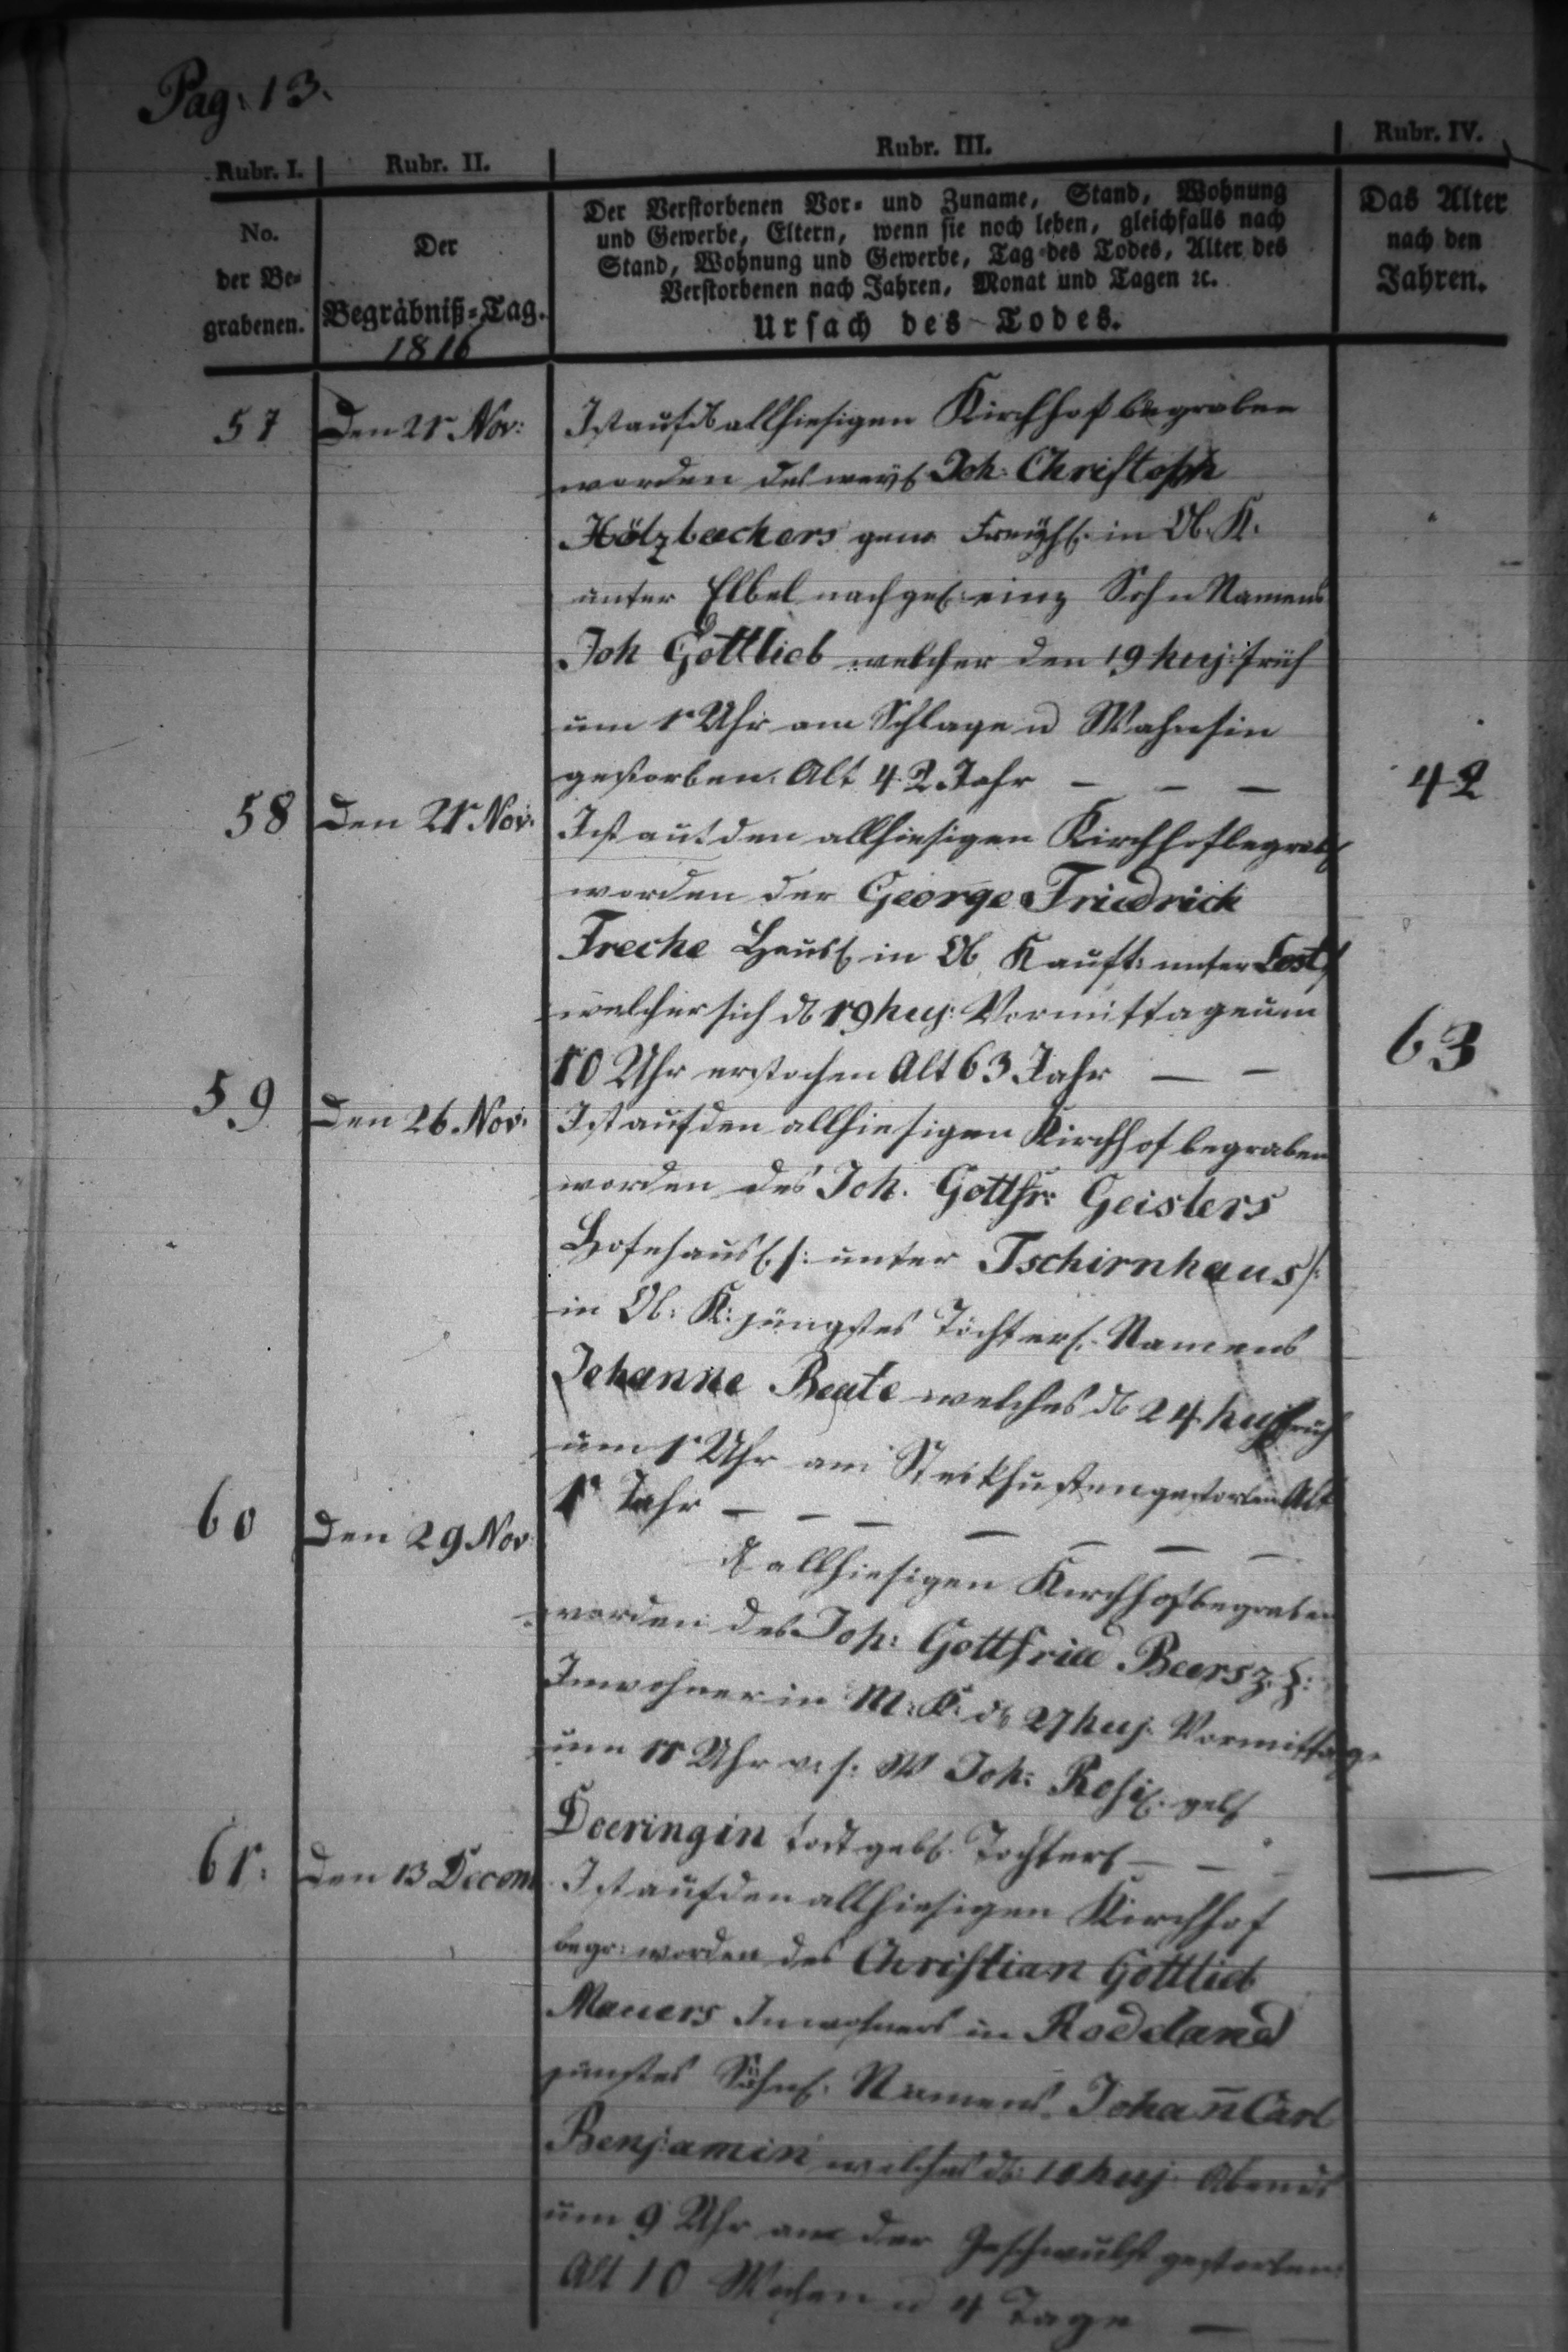 Pag. 13.
Rubr. I. Rubr. II. Rubr. III. Rubr. IV.
No.
der Be-
grabenen.
Der
Begräbniß-Tag.
1816
Der Verstorbenen Vor- und Zuname, Stand, Wohnung
und Gewerbe, Eltern, wenn sie noch leben, gleichfalls nach
Stand, Wohnung und Gewerbe, Tag des Todes, Alter des
Verstorbenen nach Jahren, Monat und Tagen ꝛc.
Ursach des Todes.
Das Alter
nach den
Jahren.
57 Den 21 Nov: Ist auf d allhiesigen Kirchhof begraben
worden des weyl Joh: Christoph
Hölzbechers gew Freyhl. in Ob. K.
unter Elbel nachgel: einz Sohn Namens
Joh Gottlieb welcher den 19 huj: früh
um 1 Uhr am Schlage u Wahnsin
gestorben. Alt 42 Jahr — — — 42
58 Den 21 Nov: Ist auf den allhiesigen Kirchhof begrab
worden der George Friedrich
Freche Häusl in Ob Kauf: unter Lest
welcher sich d 19 huj: Vormittage um
10 Uhr erstochen Alt 63 Jahr — — 63
59 Den 26 Nov: Ist auf den allhiesigen Kirchhof begraben
worden des Joh. Gottfr: Geislers
Hofehäusl. /: unter Tschirnhaus /:
in Ob: K: jüngstes Töchterl. Namens
Johanne Beate welches d 24 huj früh
um 1 Uhr am Steckhusten gestorben Alt
1 Jahr — — — — — — —
60 Den 29 Nov: d allhiesigen Kirchhof begraben
worden des Joh: Gottfried Beers z. Z:
Inwohner in M: K: d 27 huj. Vormittage
um 11 Uhr v. s: W Joh: Rosi. geb
Doeringin todt geb. Tochter — —
61. Den 13 Decem Ist auf den allhiesigen Kirchhof —
begr: worden des Christian Gottlieb
Mauers Inwohners in Roddland
jünstes Söhnl. Namens Johan̄ Carl
Benjamin welches d: 10 huj: Abends
um 9 Uhr an der Geschwulst gestorben:
Alt 10 Wochen u 4 Tage —